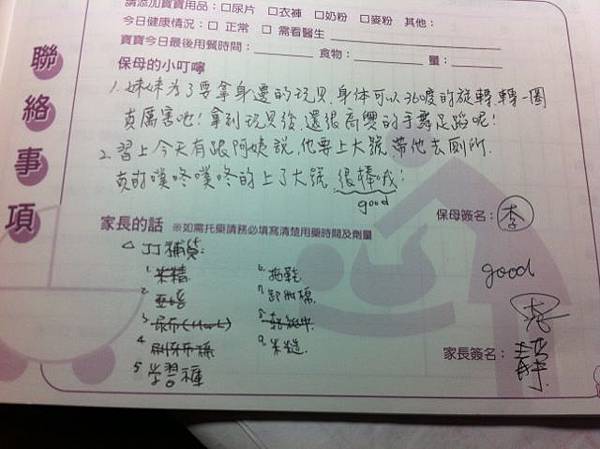 請添加寶寶用品：□尿片 □衣褲 □奶粉 □麥粉 其他：
今日健康情況：□ 正常 □ 需看醫生
寶寶今日最後用餐時間： 食物： 量：
聯絡事項
保母的小叮嚀
1.妹妹為了要拿身邊的玩具,身体可以360度的旋轉轉一圈
真厲害吔!拿到玩具後,還很高興的手舞足蹈呢!
2.習上今天有跟阿姨說,他要上大號,帶他去廁所.
真的噗咚噗咚的上了大號,很棒哦!
good
保母簽名：李
家長的話 ※如需托藥請務必填寫清楚用藥時間及劑量
補貨:
1.米精
6.拖鞋
2.
7.
3.尿布
8.
4.刷牙布
9.米
5.學習褲
good
家長簽名：靜